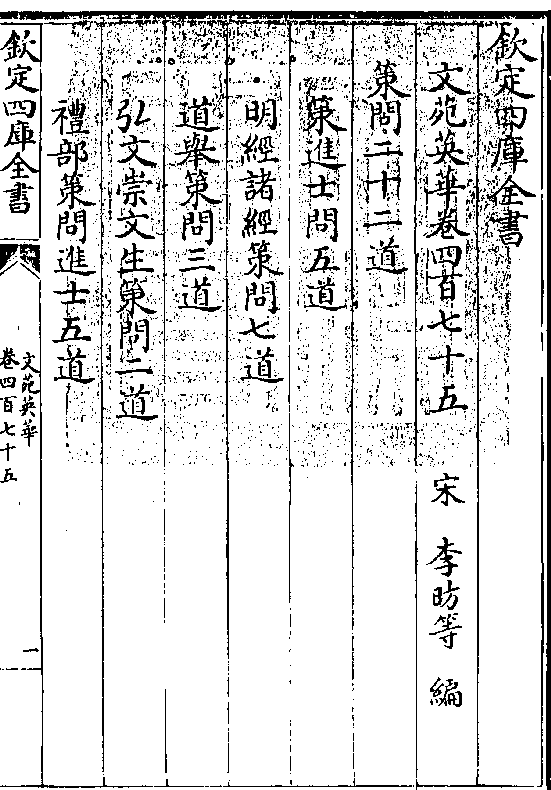 欽定四庫全書
文苑英華卷四百七十五 宋 李昉等 編
策問二十二道
策進士問五道
明經諸經策問七道
道舉策問三道
弘文崇文生策問二道
禮部策問進士五道
欽定四庫全書
文苑英華
卷四百七十五
一